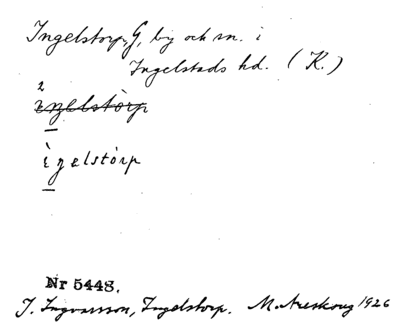 Ingelstorp, G, by och sn. i
Ingelstads hd. (K.)
2
ingelstòrp
ìgelstòrp
Nr 5448.
J. Ingvarsson, Ingelstorp. M. Areskoug 1926